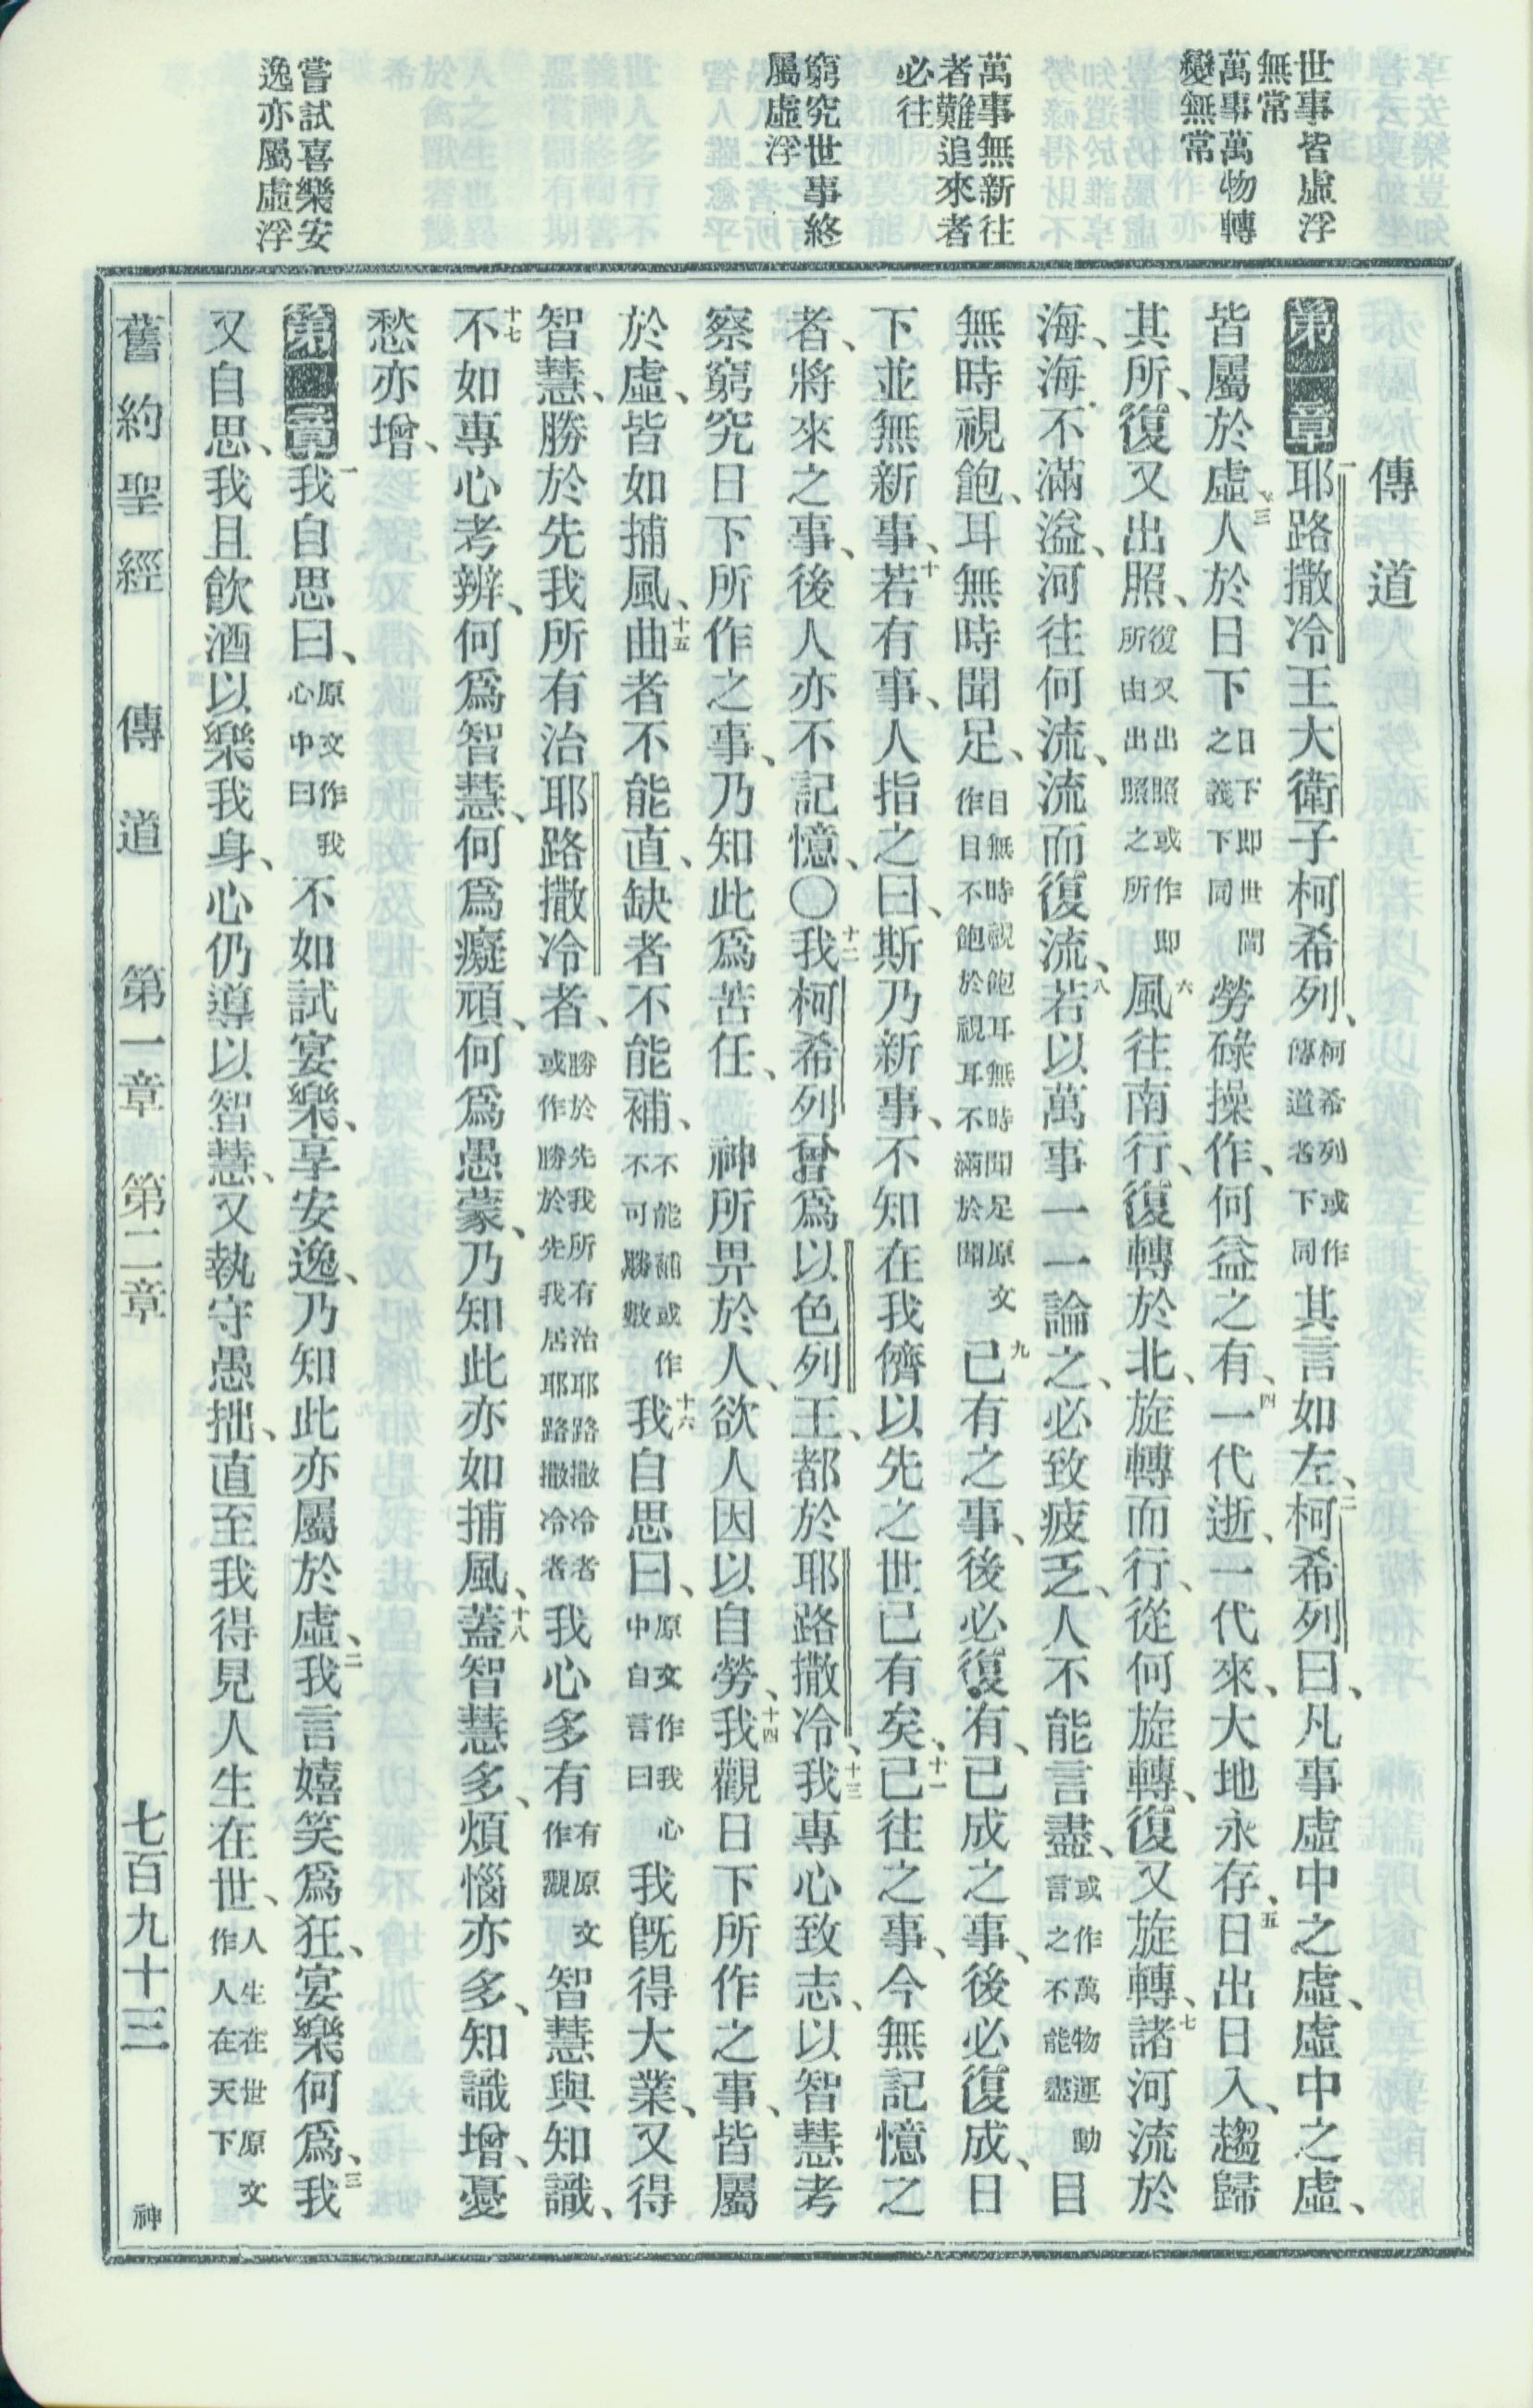 世事皆虛浮
無常
萬事萬物轉
變無常
萬事無新往
者難追來者
必往
窮究世事終
屬虛浮
嘗試喜樂安
逸亦屬虛浮
傳道
第一章 一耶路撒冷王大衛子柯希列、柯希列或作傳道者下同其言如左、二柯希列曰、凡事虛中之虛、虛中之虛、
皆屬於虛、三人於日下日下卽世間之義下同勞碌操作、何益之有、四一代逝、一代來、大地永存、五日出日入、趨歸
其所、復又出照、復又出照或作卽所由出照之所六風往南行、復轉於北、旋轉而行、從何旋轉、復又旋轉、七諸河流於
海、海不滿溢、河往何流、流而復流、八若以萬事一一論之、必致疲乏、人不能言盡、或作萬物運動言之不能盡目
無時視飽、耳無時聞足、目無時視飽耳無時聞足原文作目不飽於視耳不滿於聞九已有之事、後必復有、已成之事、後必復成、日
下並無新事、十若有事、人指之曰、斯乃新事、不知在我儕以先之世已有矣、十一已往之事、今無記憶之
者、將來之事、後人亦不記憶、〇十二我柯希列曾爲以色列王、都於耶路撒冷、十三我專心致志、以智慧考
察窮究日下所作之事、乃知此爲苦任、神所畀於人、欲人因以自勞、十四我觀日下所作之事、皆屬
於虛、皆如捕風、十五曲者不能直、缺者不能補、不能補或作不可勝數十六我自思曰、原文作我心中自言曰我旣得大業、又得
智慧、勝於先我所有治耶路撒冷者、勝於先我所有治耶路撒冷者或作勝於先我居耶路撒冷者我心多有有原文作觀智慧與知識、
十七不如專心考辨、何爲智慧、何爲癡頑、何爲愚蒙、乃知此亦如捕風、十八蓋智慧多、煩惱亦多、知識增、憂
愁亦增、
第二章 一我自思曰、原文作我心中曰不如試宴樂、享安逸、乃知此亦屬於虛、二我言嬉笑爲狂、宴樂何爲、三我
又自思、我且飮酒以樂我身、心仍導以智慧、又執守愚拙、直至我得見人生在世、人生在世原文作人在天下
舊約聖經 傳道 第一章 第二章 七百九十三 神